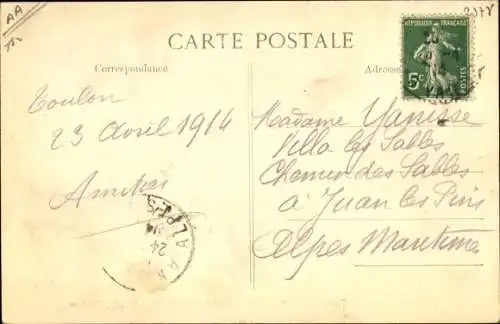 AA
2178
CARTE POSTALE
Correspondance
Adresse
REPUBLIQUE FRANÇAISE
5c
POSTES
Toulon
23 Avril 1914
Amitiés
Madame Yanisse
Villa les Sables
Chemin des Sables
à Juan les Pins
Alpes Maritimes
24
ALPES